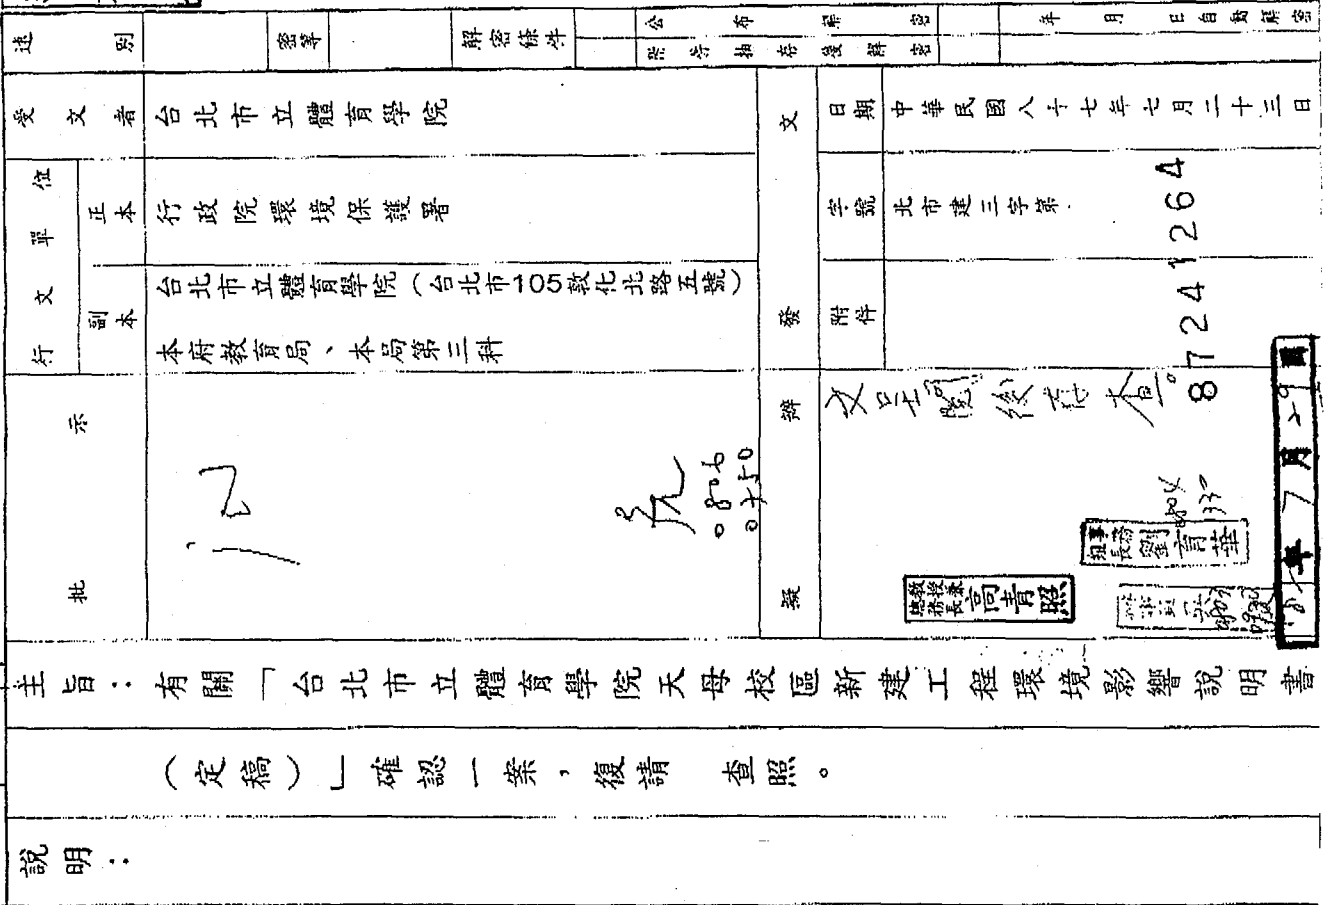 速別
密等
解密條件
公布解密
附件抽存後解密
年 月 日自動解密
受文者
台北市立體育學院
行文單位
正本
行政院環境保護署
副本
台北市立體育學院(台北市105敦化北路五號)
本府教育局、本局第三科
發文
日期
中華民國八十七年七月二十三日
字號
北市建三字第
87241264
附件
批示
0806
0750
擬辦
文呈閱後存查。
事務組長 劉育華
0804
1330
教授兼總務長 高青照
年7月29日
主旨:有關「台北市立體育學院天母校區新建工程環境影響說明書
(定稿)」確認一案,復請 查照。
說明: